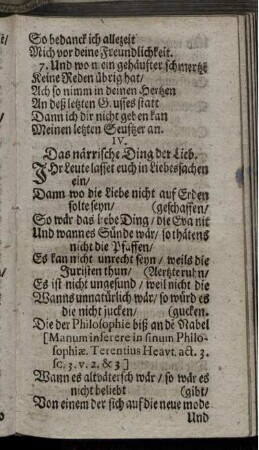 So bedanck ich allezeit
Mich vor deine Freundlichkeit.
7. Und wo n ein gehäufter schmertz
Keine Reden übrig hat/
Ach so nimm in deinen Hertzen
An deß letzten G. usses statt
Dann ich dir nicht geben kan
Meinen letzten Seufftzer an.
IV.
Das närrische Ding der Lieb.
IHr Leute lasset euch in Liebessachen
ein/
Dann wo die Liebe nicht auf Erden
solte seyn/ (geschaffen/
So wär das liebe Ding/ die Eva nit
Und wann es Sünde wär/ so thätens
nicht die Pfaffen/
Es kan nicht unrecht seyn/ weils die
Juristen thun/ (Aertzte
Es ist nicht ungesund/ weil nicht die
Wanns unnatürlich wär/ so würd es
die nicht jucken/ (gucken.
Die der Philosophie biß an die Nabel
[Manum inserere in sinum Philo-
sophiæ. Terentius Heavt. act. 3.
sc. 3. v. 2. & 3]
Wann es altvätersch wär/ so wär es
nicht beliebt (gibt/
Von einem der sich auf die neue mode
Und